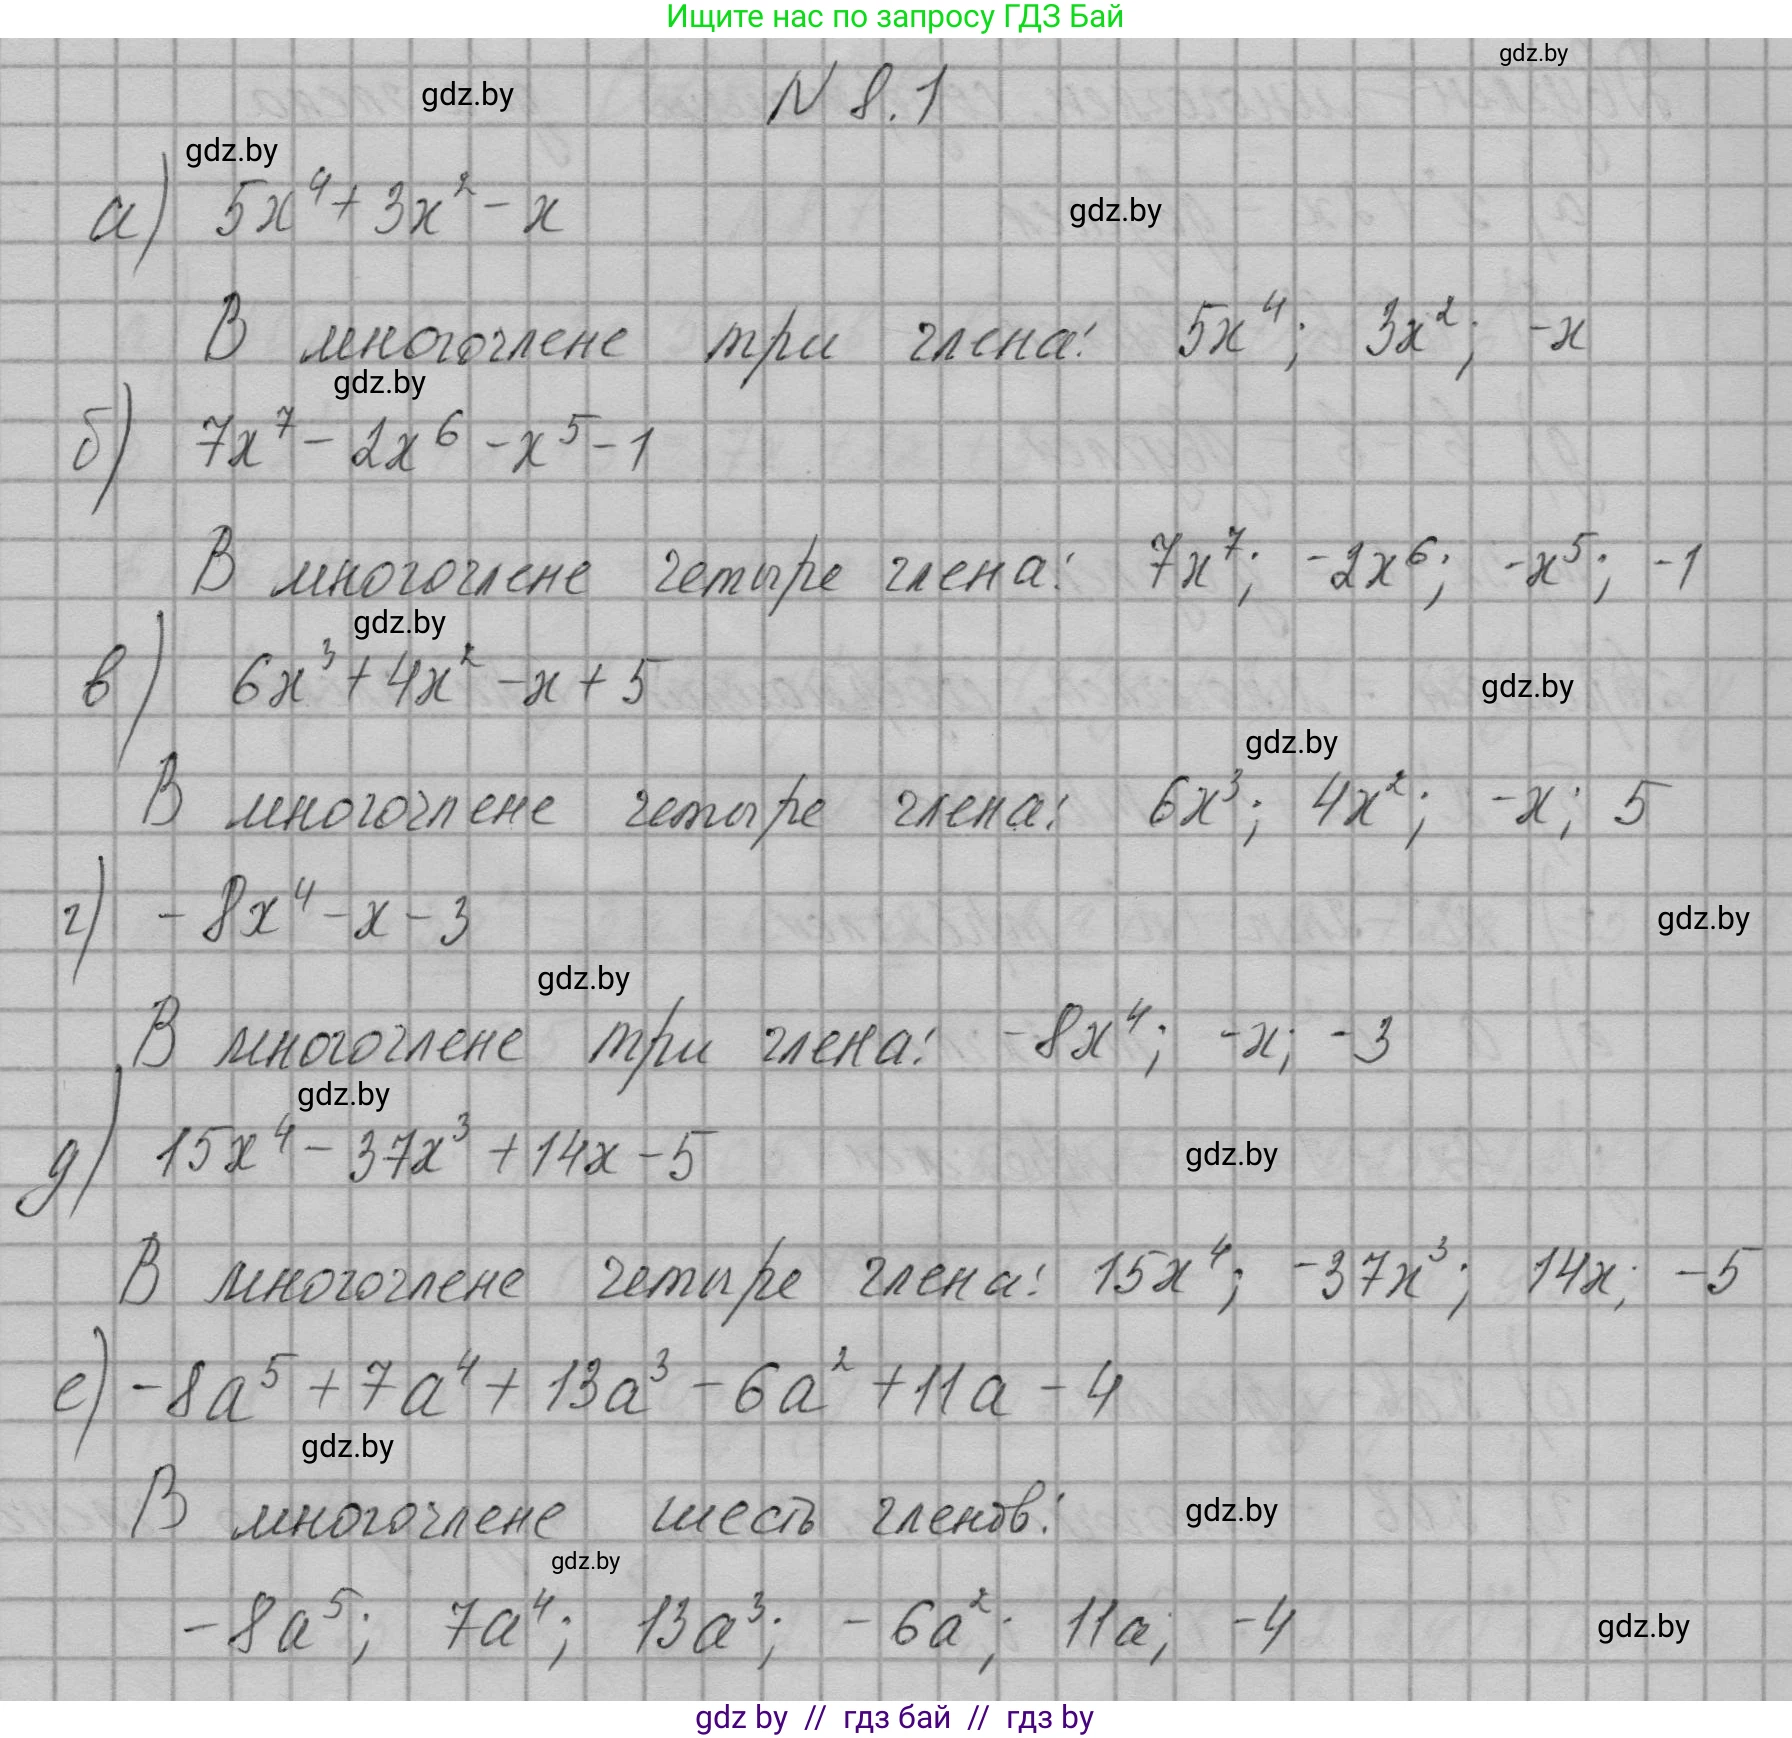 Ищите нас по запросу ГДЗ Бай
gdz.by
gdz.by
N 8.1
gdz.by
а) 5x⁴ + 3x² - x
gdz.by
В многочлене три члена: 5x⁴; 3x²; -x
gdz.by
б) 7x⁷ - 2x⁶ - x⁵ - 1
В многочлене четыре члена: 7x⁷; -2x⁶; -x⁵; -1
gdz.by
в) 6x³ + 4x² - x + 5
gdz.by
gdz.by
В многочлене четыре члена: 6x³; 4x²; -x; 5
г) -8x⁴ - x - 3
gdz.by
gdz.by
В многочлене три члена: -8x⁴; -x; -3
gdz.by
д) 15x⁴ - 37x³ + 14x - 5
gdz.by
В многочлене четыре члена: 15x⁴; -37x³; 14x; -5
е) -8a⁵ + 7a⁴ + 13a³ - 6a² + 11a - 4
gdz.by
В многочлене шесть членов:
gdz.by
gdz.by
-8a⁵; 7a⁴; 13a³; -6a²; 11a; -4
gdz.by
gdz by // гдз бай // гдз by